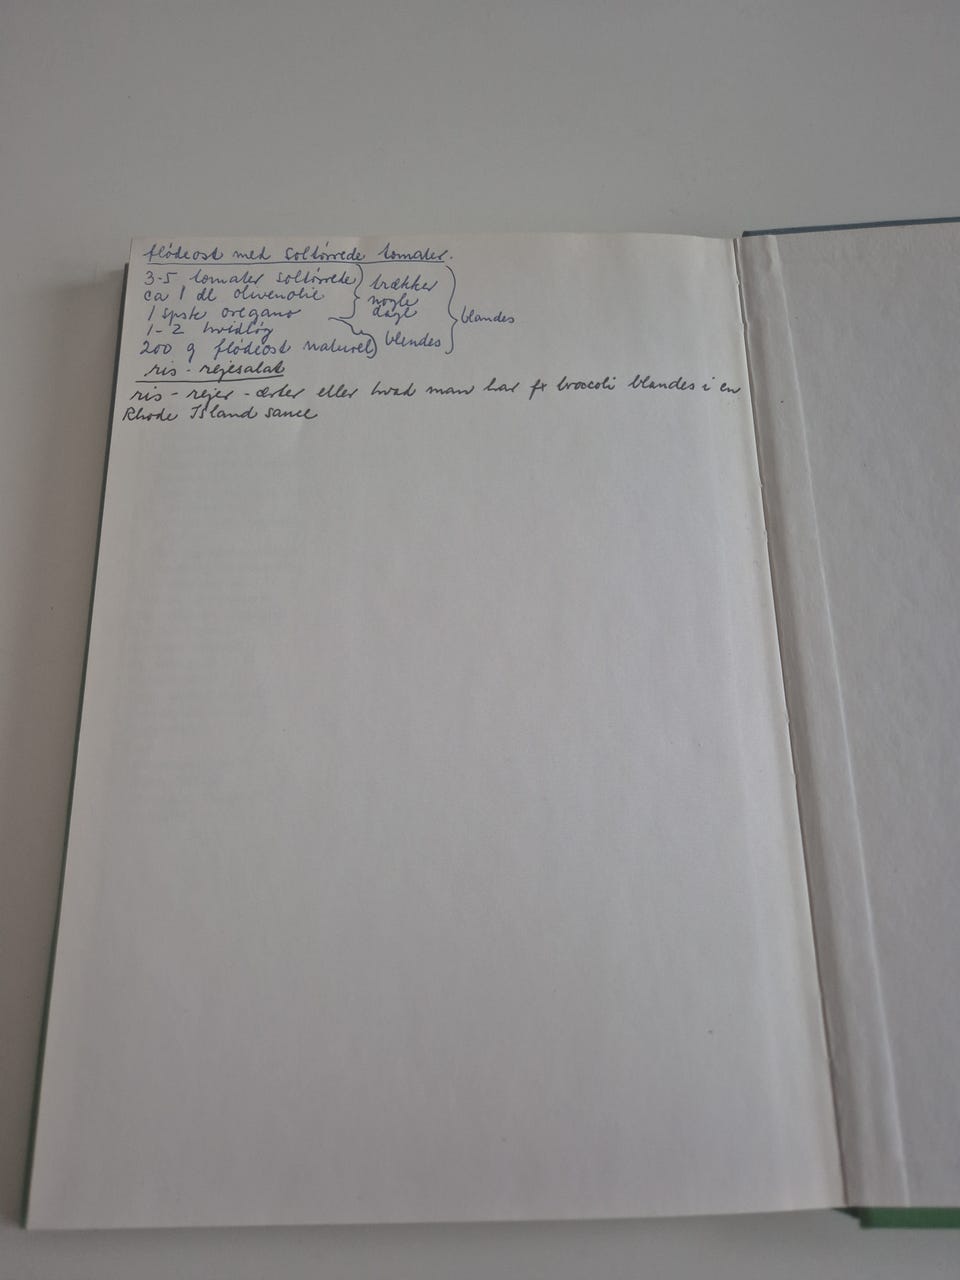 flødeost med soltørrede tomater.
3-5 tomater soltørrede
ca 1 dl olivenolie
1 spsk oregano
trækker
nogle
dage
1-2 hvidløg
200 g flødeost naturel
blendes
blandes
ris - rejesalat
ris - rejer - ærter eller hvad man har fx broccoli blandes i en
Rhode Island sauce